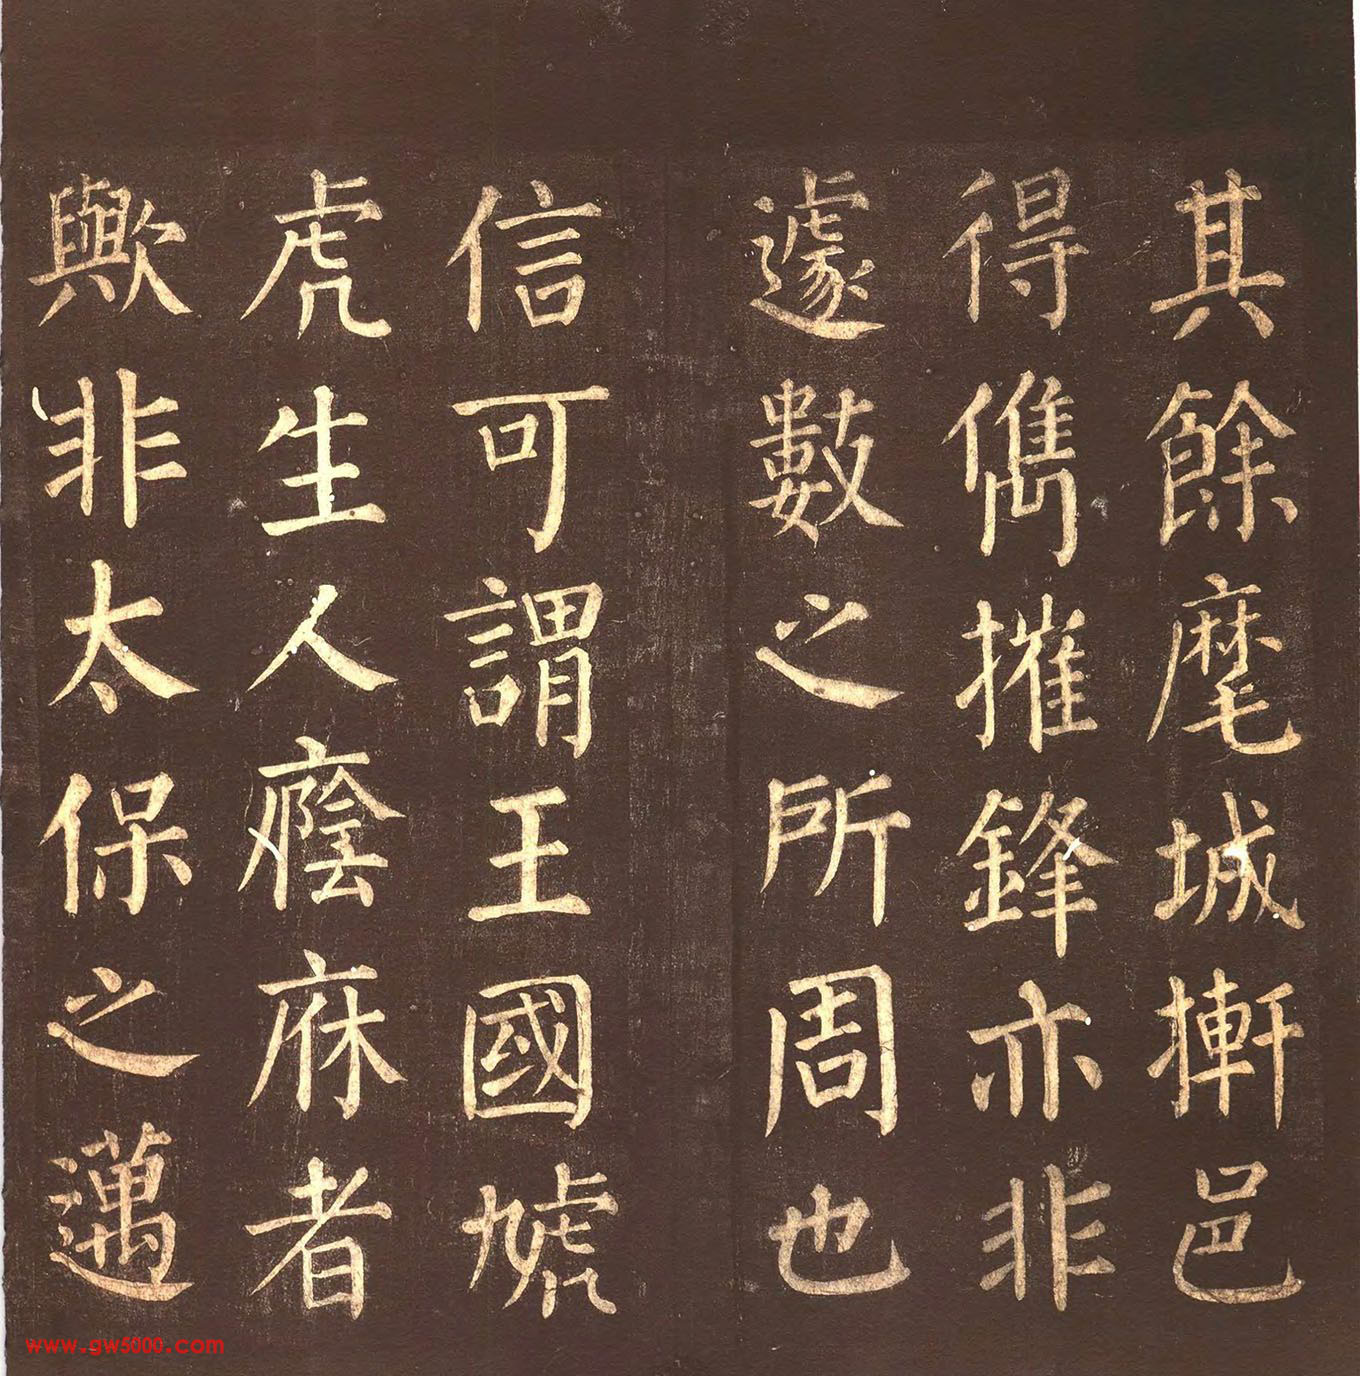 其餘麾城摲邑
得儁摧鋒亦非
遽數之所周也
信可謂王國虓
虎生人廕庥者
歟非太保之邁
www.gw5000.com